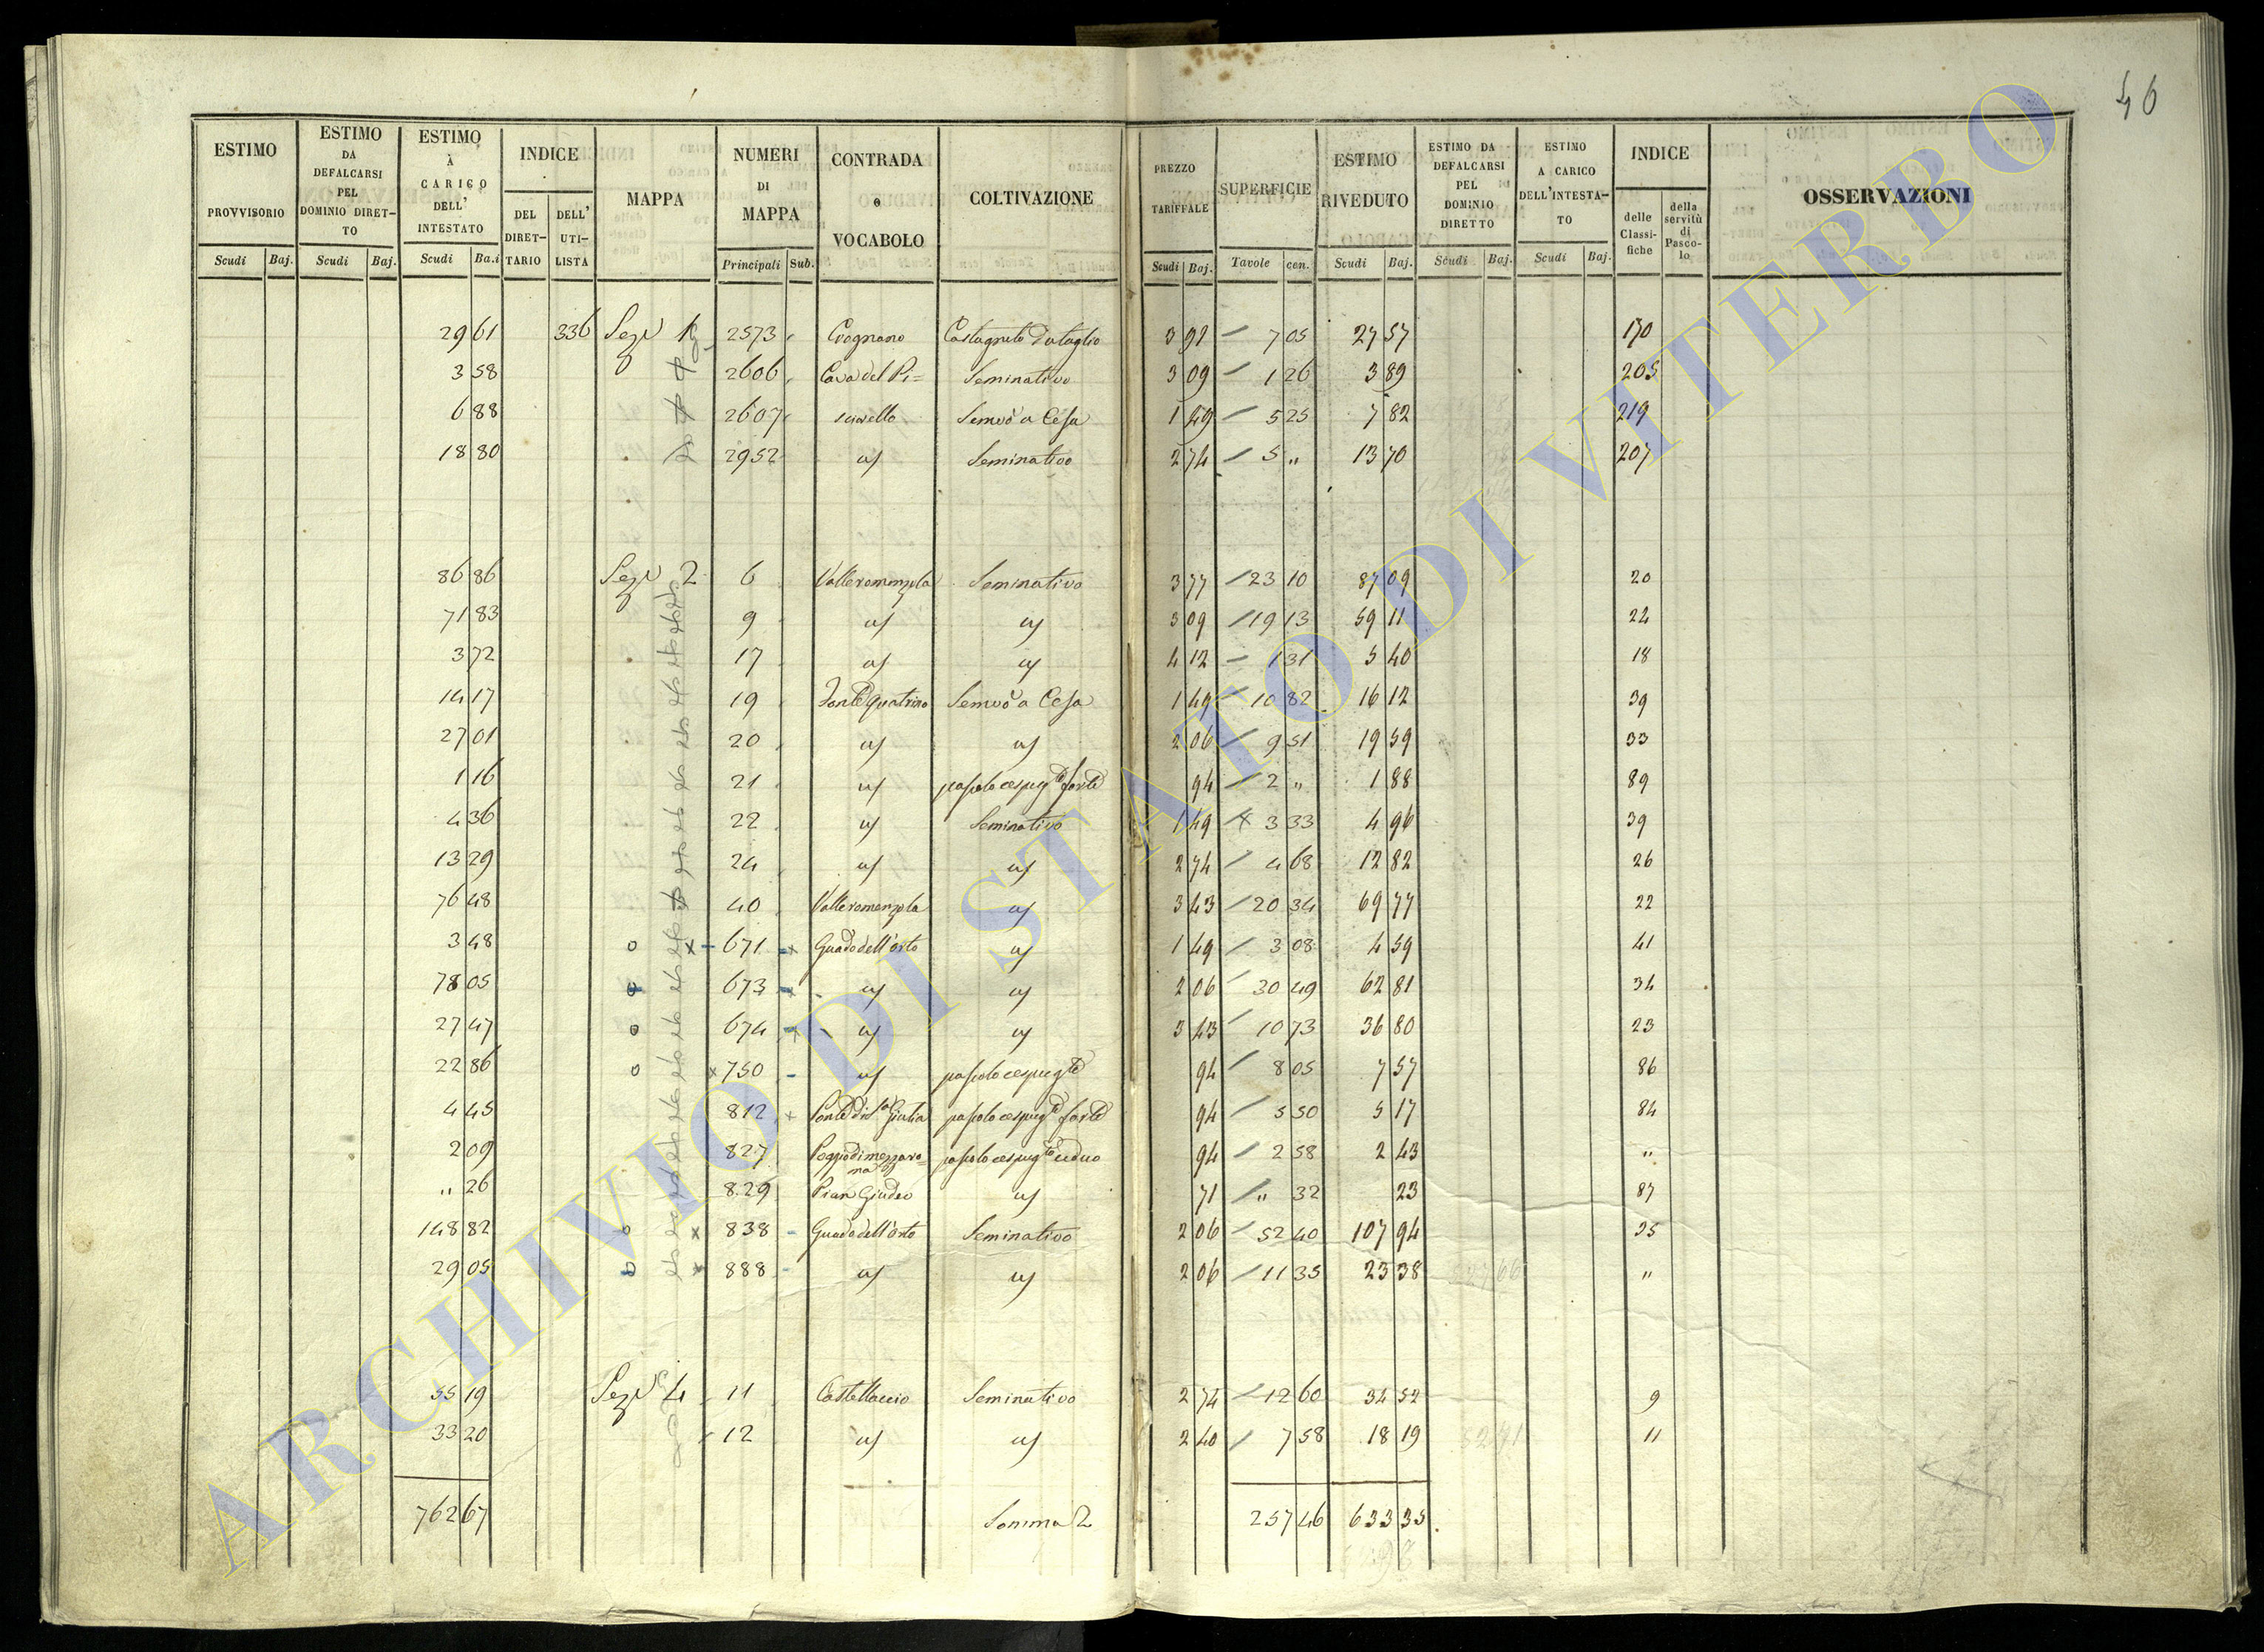 46
ESTIMO PROVVISORIO Scudi Baj.
ESTIMO DA DEFALCARSI PEL DOMINIO DIRET-TO Scudi Baj.
ESTIMO À CARICO DELL' INTESTATO Scudi Ba.i
INDICE DEL DIRET-TARIO DELL' UTI-LISTA
MAPPA
NUMERI DI MAPPA Principali Sub.
CONTRADA o VOCABOLO
COLTIVAZIONE
PREZZO TARIFFALE Scudi Baj.
SUPERFICIE Tavole cen.
ESTIMO RIVEDUTO Scudi Baj.
ESTIMO DA DEFALCARSI PEL DOMINIO DIRETTO Scudi Baj.
ESTIMO A CARICO DELL'INTESTA-TO Scudi Baj.
INDICE delle Classi-fiche della servitù di Pasco-lo
OSSERVAZIONI
29 61 336 Sez 1 2573 Crognano Castagneto da taglio 3 91 7 05 27 57 170
3 58 2606 Cava del Pi= Seminativo 3 09 1 26 3 89 205
6 88 2607 sciarello Semvo a Cesa 1 49 5 25 7 82 219
18 80 2952 Seminativo 2 74 5 „ 13 70 207
86 86 Sez 2 6 Valleromanzola Seminativo 3 77 23 10 87 09 20
71 83 9 3 09 19 13 59 11 22
3 72 17 4 12 1 31 5 40 18
14 17 19 Semvo a Cesa 1 49 10 82 16 12 39
27 01 20 2 06 9 51 19 59 33
1 16 21 pascolo cespugto forte 94 2 „ 1 88 89
4 36 22 Seminativo 1 49 3 33 4 96 39
13 29 24 2 74 4 68 12 82 26
76 48 40 Valleromanzola 3 43 20 34 69 77 22
3 48 671 Guado dell'orto 1 49 3 08 4 59 41
78 05 673 2 06 30 49 62 81 34
27 47 674 3 43 10 73 36 80 23
22 86 750 pascolo cespugto 94 8 05 7 57 86
4 45 812 Ponte di Sa Giulia pascolo cespugto forte 94 5 50 5 17 84
2 09 827 pascolo cespugto 94 2 58 2 43 „
„ 26 829 Pian Giudeo 71 „ 32 23 87
148 82 838 Guado dell'orto Seminativo 2 06 52 40 107 94 35
29 05 888 2 06 11 35 23 38 „
55 19 Sez 4 11 Castellaccio Seminativo 2 74 12 60 34 52 9
33 20 12 2 40 7 58 18 19 11
762 67 Somma 2 257 46 633 35
ARCHIVIO DI STATO DI VITERBO